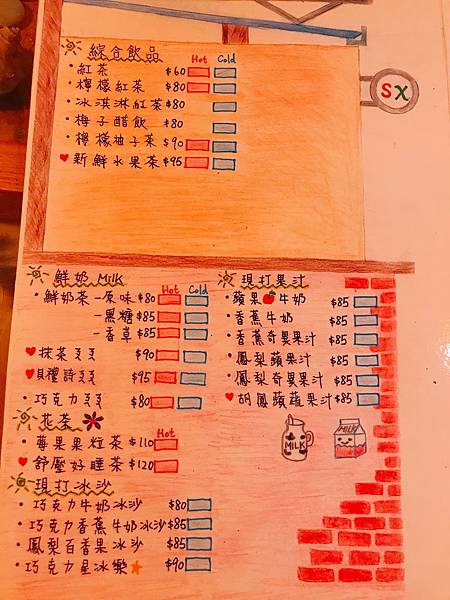 綜合飲品 Hot Cold
・紅茶 $60
・檸檬紅茶 $80
・冰淇淋紅茶 $80
・梅子醋飲 $80
・檸檬柚子茶 $90
♥新鮮水果茶 $95
SX
鮮奶 Milk Hot Cold
・鮮奶茶-原味 $80
-黑糖 $85
-香草 $85
♥抹茶ㄋㄋ $90
♥貝禮詩ㄋㄋ $95
・巧克力ㄋㄋ $80
花茶 Hot
・蓴果果粒茶 $110
♥舒壓好睡茶 $120
現打冰沙
・巧克力牛奶冰沙 $80
・巧克力香蕉牛奶冰沙 $85
・鳳梨百香果冰沙 $85
・巧克力星冰樂★ $90
現打果汁
・蘋果牛奶 $85
・香蕉牛奶 $85
・香蕉奇異果汁 $85
・鳳梨蘋果汁 $85
・鳳梨奇異果汁 $85
♥胡鳳蘋蔬果汁 $85
MILK
MILK